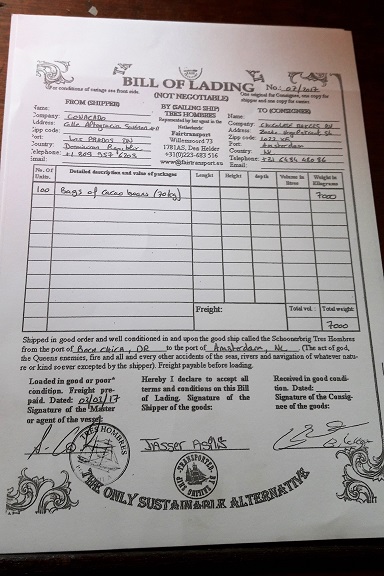 BILL OF LADING No: 02/2017
For conditions of cartage see front side.
(NOT NEGOTIABLE)
One original for Consignee, one copy for
shipper and one copy for master
FROM (SHIPPER)
Name:
Company: CONACADO
Address:
Zip code:
Port:
Country: Dominican Republic
Telephone: +1 809 957 6203
Email:
BY (SAILING SHIP)
TRES HOMBRES
Represented by her agent in the
Netherlands:
Fairtransport
Willemsoord 73
1781AS, Den Helder
+31(0)223-683 516
www@fairtransport.eu
TO (CONSIGNEE)
Name:
Company:
Address:
Zip code:
Port: Amsterdam
Country: NL
Telephone:
Email:
No. Of Units. Detailed description and value of packages Lenght Height depth Volume in litres Weight in Kilograms
100 Bags of cacao beans (70kg) 7000
Freight: Total vol: Total weight:
7000
Shipped in good order and well conditioned in and upon the good ship called the Schoonerbrig Tres Hombres
from the port of Boca Chica, DR to the port of Amsterdam, NL (The act of god,
the Queens enemies, fire and all and every other accidents of the seas, rivers and navigation of whatever nature
or kind soever excepted by the shipper). Freight payable before loading.
Loaded in good or poor*
condition. Freight pre-
paid. Dated: 03/03/17
Signature of the Master
or agent of the vessel:
Hereby I declare to accept all
terms and conditions on this Bill
of Lading. Signature of the
Shipper of the goods:
Received in good condi-
tion. Dated:
Signature of the Consig-
nee of the goods:
TRES HOMBRES
TRANSPORTED BY SAILING SHIP
THE ONLY SUSTAINABLE ALTERNATIVE